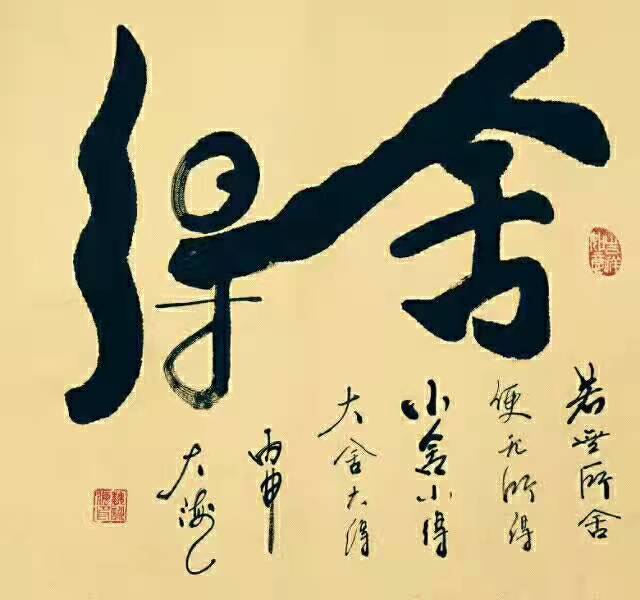 舍得
吉祥如意
若無所舍
便无所得
小舍小得
大舍大得
丙申
大海